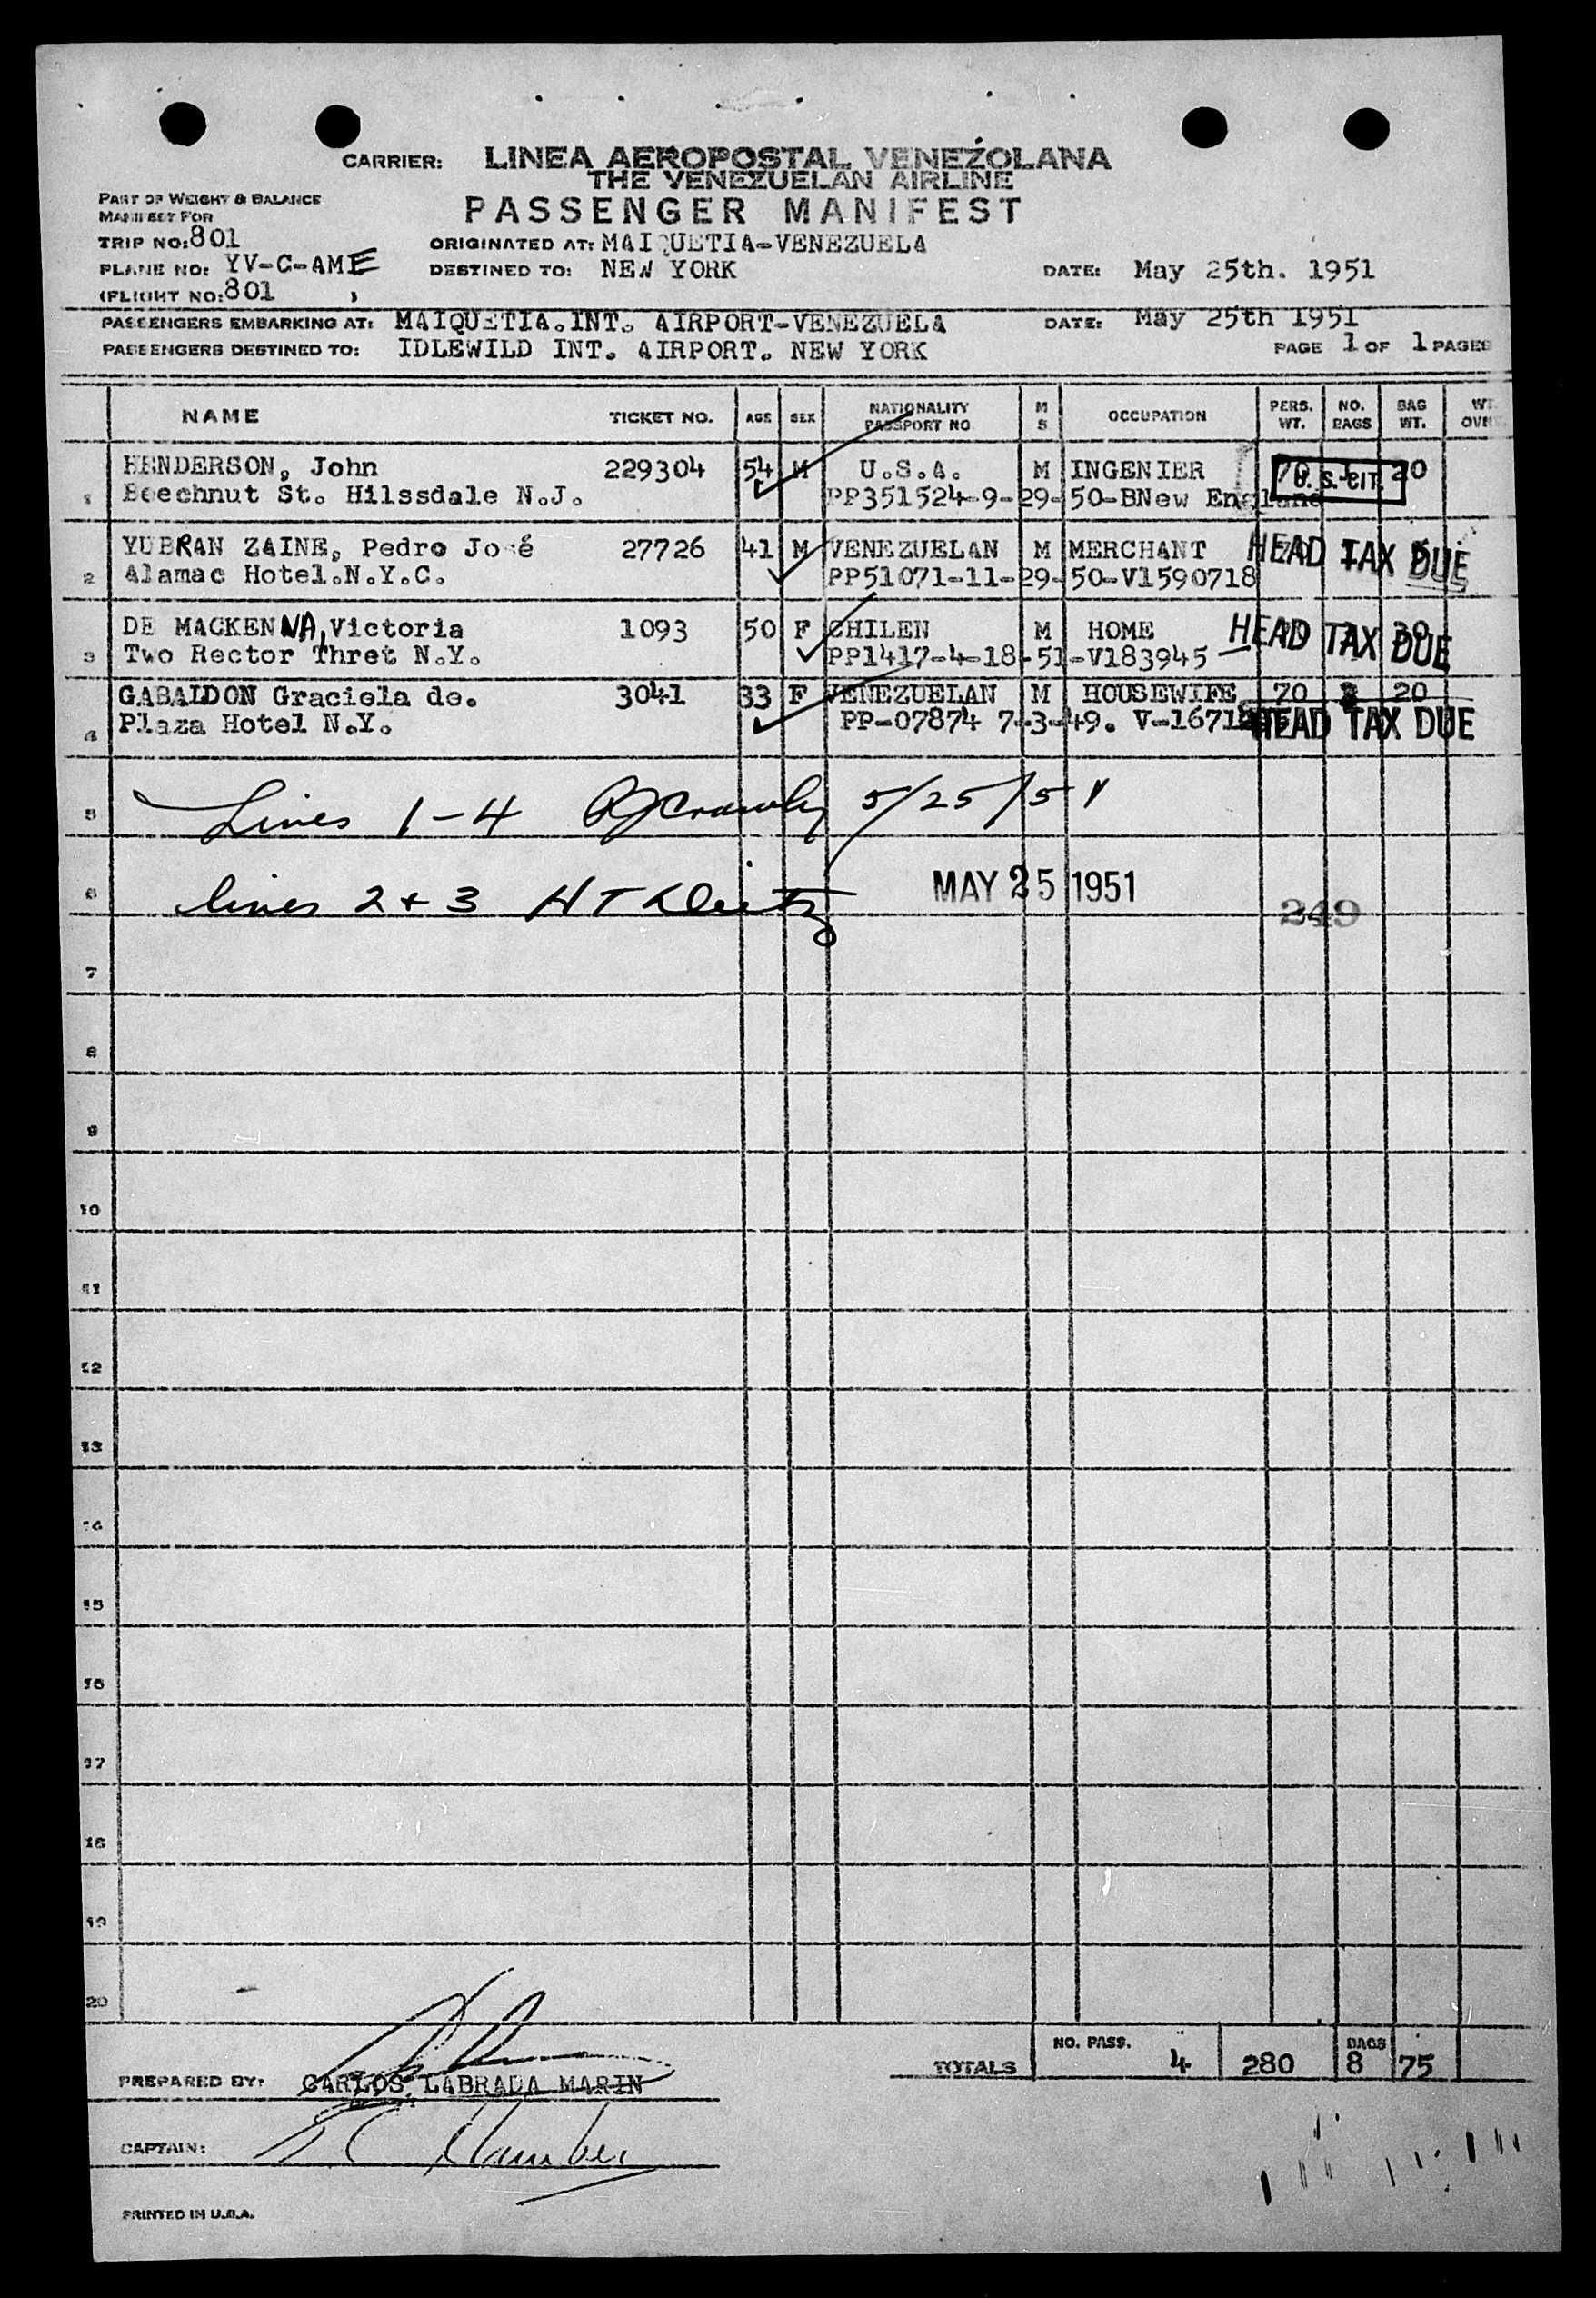 CARRIER: LINEA AEROPOSTAL VENEZOLANA
THE VENEZUELAN AIRLINE
PART OF WEIGHT & BALANCE
MANIFEST FOR
PASSENGER MANIFEST
TRIP NO: 801 ORIGINATED AT: MAIQUETIA-VENEZUELA
PLANE NO: YV-C-AME DESTINED TO: NEW YORK DATE: May 25th. 1951
(FLIGHT NO: 801 )
PASSENGERS EMBARKING AT: MAIQUETIA.INT. AIRPORT-VENEZUELA DATE: May 25th 1951
PASSENGERS DESTINED TO: IDLEWILD INT. AIRPORT. NEW YORK PAGE 1 OF 1 PAGES
NAME TICKET NO. AGE SEX NATIONALITY PASSPORT NO M S OCCUPATION PERS. WT. NO. BAGS BAG WT. WT.
HENDERSON, John 229304 54 M U.S.A. M INGENIER 70 U.S.CIT. 20
1 Beechnut St. Hilssdale N.J. PP351524-9-29-50-BNew England
YUBRAN ZAINE, Pedro José 27726 41 M VENEZUELAN M MERCHANT HEAD TAX DUE
2 Alamac Hotel.N.Y.C. PP51071-11-29-50-V1590718
DE MACKENNA, Victoria 1093 50 F CHILEN M HOME HEAD TAX DUE
3 Two Rector Thret N.Y. PP1417-4-18-51-V183945
GABALDON Graciela de. 3041 33 F VENEZUELAN M HOUSEWIFE 70 20
4 Plaza Hotel N.Y. PP-07874 7-3-49. HEAD TAX DUE
5 Lines 1-4 5/25/51
6 lines 2 + 3 H T MAY 25 1951 249
7
8
9
10
11
12
13
14
15
16
17
18
19
20
TOTALS NO. PASS. 4 280 BAGS 8 75
PREPARED BY: CARLOS LABRADA MARIN
CAPTAIN:
PRINTED IN U.S.A.